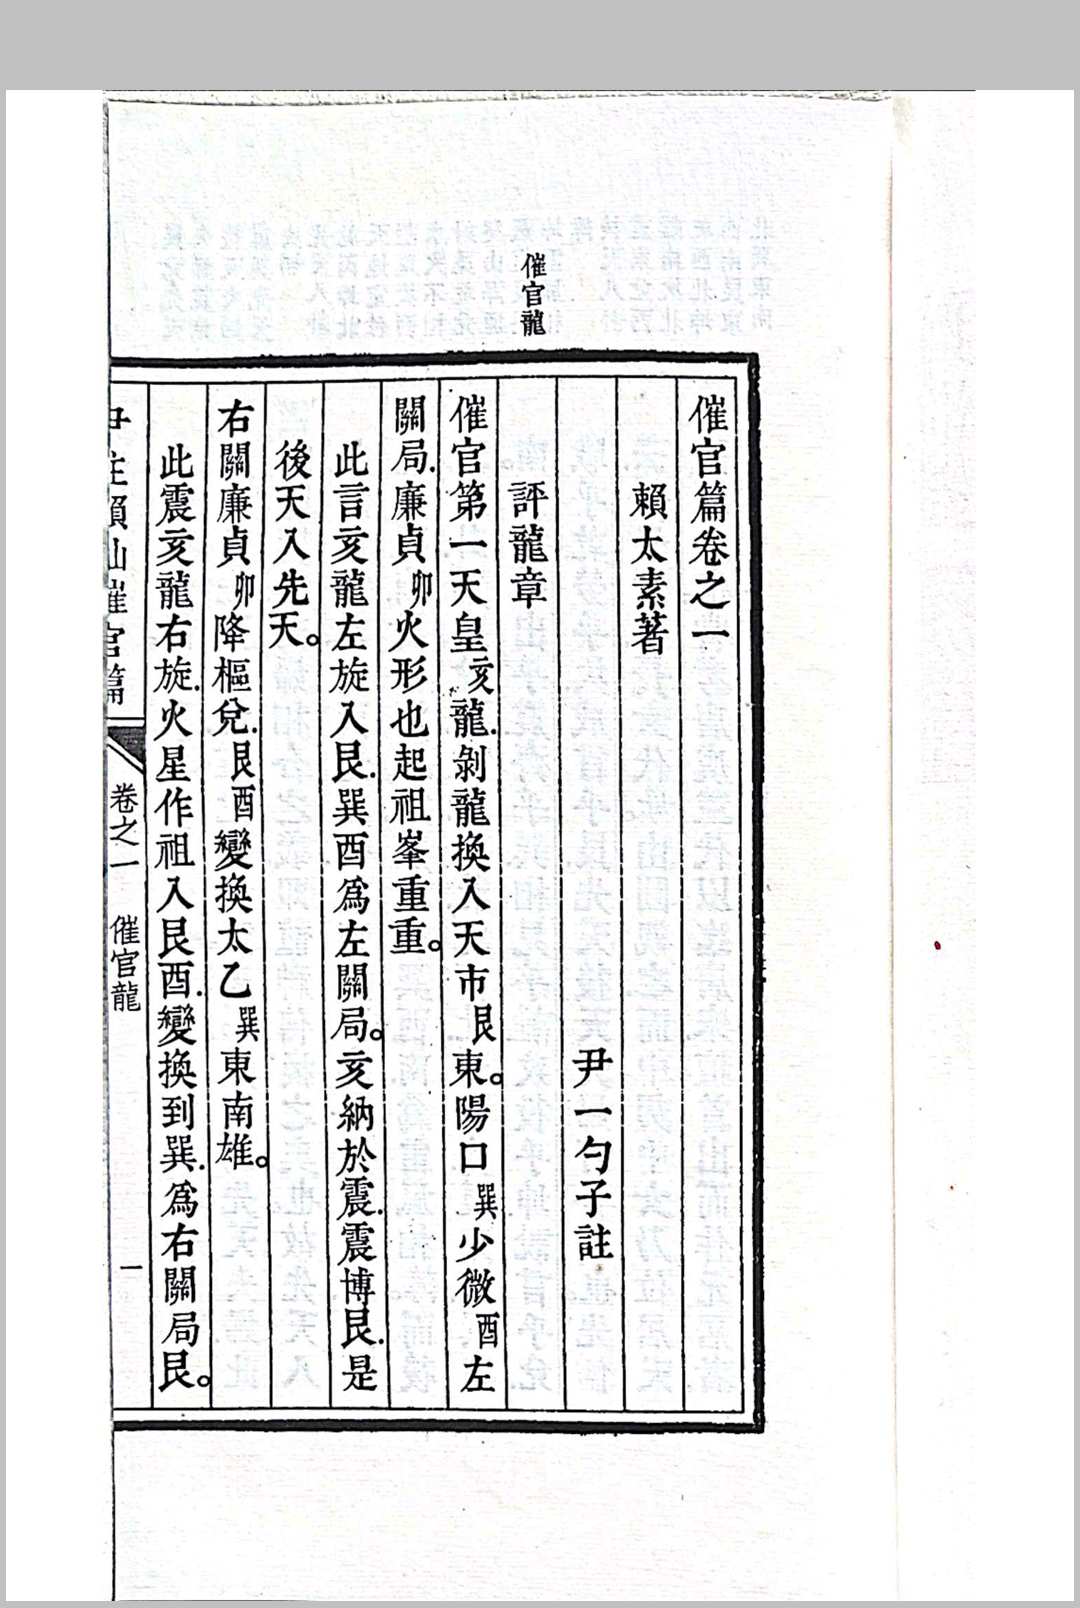 催官龍
催官篇卷之一
賴太素著
尹一勺子註
評龍章
催官第一天皇亥龍.剝龍換入天市艮東。陽口巽少微酉左
關局.廉貞卯火形也起祖峯重重。
此言亥龍左旋入艮.巽酉爲左關局。亥納於震.震博艮.是
後天入先天。
右關廉貞卯降樞兌.艮酉變換太乙巽東南雄。
此震亥龍右旋.火星作祖入艮酉.變換到巽.爲右關局艮。
尹註賴仙催官篇
卷之一 催官龍 一